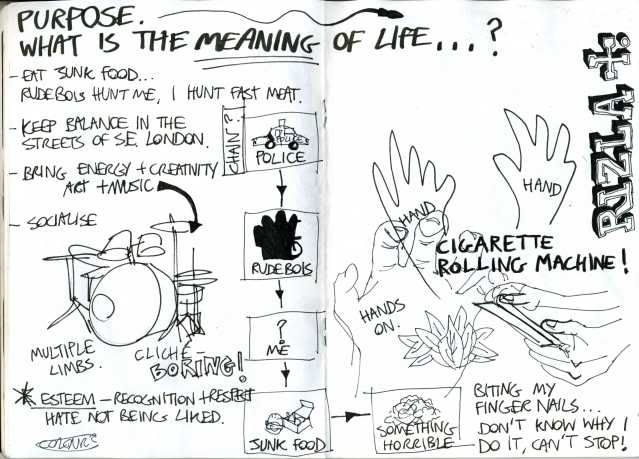 PURPOSE.
WHAT IS THE MEANING OF LIFE...?
- EAT JUNK FOOD...
RUDEBOIS HUNT ME, I HUNT FAST MEAT.
- KEEP BALANCE IN THE
STREETS OF S.E. LONDON.
- BRING ENERGY + CREATIVITY
ART + MUSIC
- SOCIALISE
MULTIPLE
LIMBS.
CLICHÉ -
BORING!
ESTEEM - RECOGNITION + RESPECT
HATE NOT BEING LIKED.
CHAIN?
POLICE
POLICE
RUDEBOIS
?
ME
JUNK FOOD
SOMETHING
HORRIBLE
HAND
HAND
RIZLA +.
CIGARETTE
ROLLING MACHINE!
HANDS
ON.
BITING MY
FINGER NAILS...
DON'T KNOW WHY I
DO IT, CAN'T STOP!